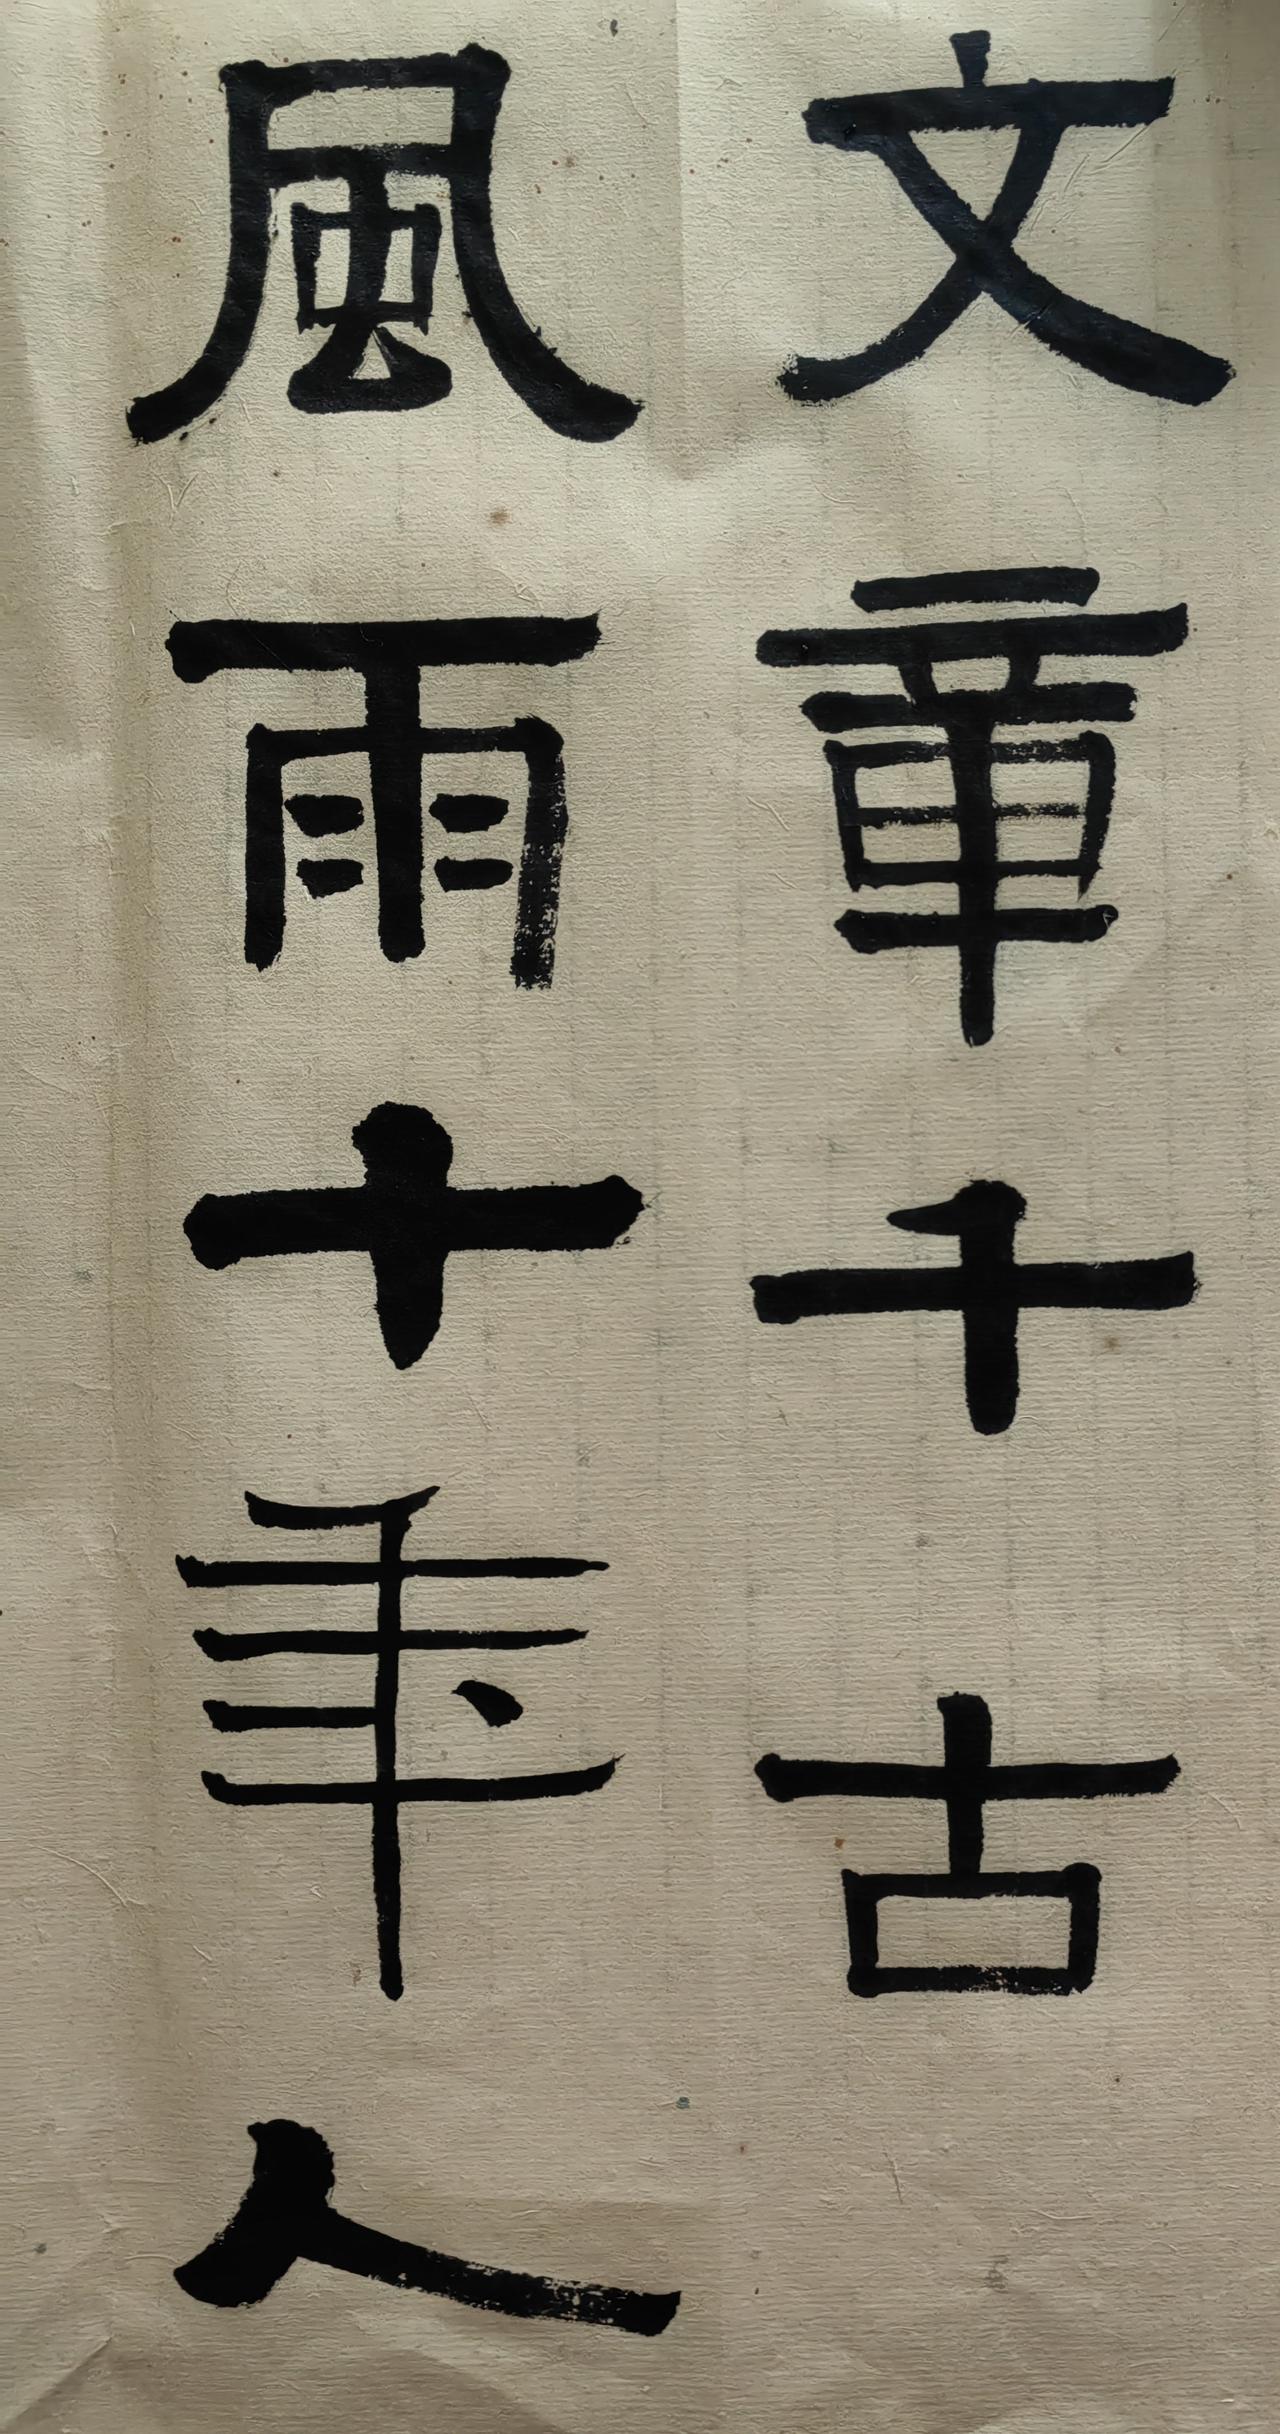 文章千古
風雨十年人